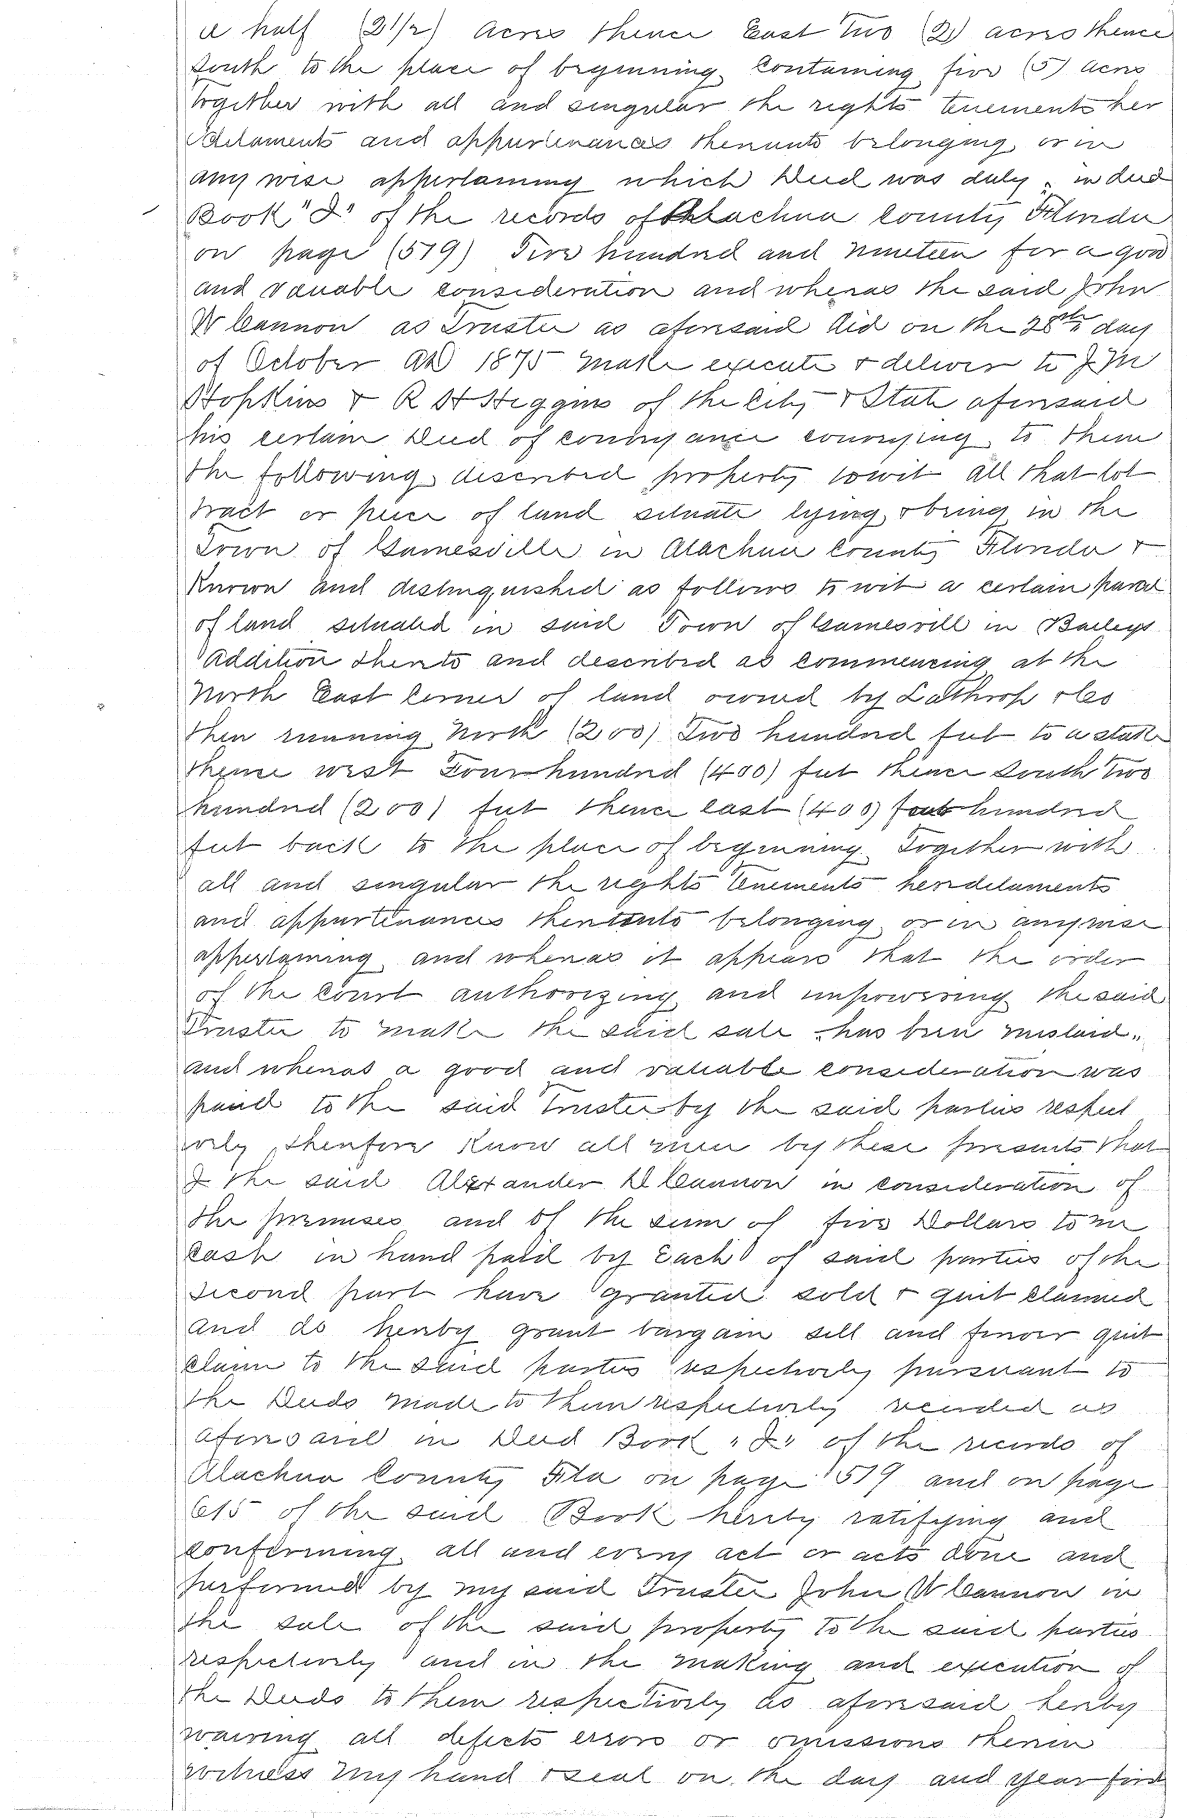 a half (2 1/2) acres thence East Two (2) acres thence
South to the place of beginning, containing five (5) acres
Together with all and singular the rights tenements her
editaments and appurtenances thereunto belonging or in
any wise appertaining which Deed was duly " in deed
Book "I" of the records of Alachua County Florida
on page (519) Five hundred and nineteen for a good
and valuable consideration and whereas the said John
W Cannon as Trustee as aforesaid did on the 28th day
of October AD 1875 make execute & deliver to J M
Hopkins & R H Higgins of the City & State aforesaid
his certain Deed of conveyance conveying to them
the following described property towit all that lot
tract or piece of land situate lying & being in the
Town of Gainesville in Alachua County Florida &
Known and distinguished as follows to wit a certain parcel
of land situated in said Town of Gainesville in Baileys
Addition thereto and described as commencing at the
North East Corner of land owned by Lathrop & Co
then running North (200) Two hundred feet to a stake
thence west Four hundred (400) feet thence South Two
hundred (200) feet thence east (400) four hundred
feet back to the place of beginning Together with
all and singular the rights tenements heredetaments
and appurtenances thereunto belonging or in anywise
appertaining and whereas it appears that the order
of the Court authorizing and empowering the said
Trustee to make the said sale "has been mislaid"
and whereas a good and valuable consideration was
paid to the said Trustee by the said parties respect
ively, therefore Know all men by these presents that
I the said Alexander D Cannon in consideration of
the premises and of the sum of five Dollars to me
Cash in hand paid by Each of said parties of the
Second part have granted sold & quit claimed
and do hereby grant bargain sell and forever quit
claim to the said parties respectively pursuant to
the Deeds made to them respectively recorded as
aforesaid in Deed Book "I" of the records of
Alachua County Fla on page 519 and on page
615 of the said Book hereby ratifying and
confirming all and every act or acts done and
performed by my said Trustee John W Cannon in
the sale of the said property to the said parties
respectively and in the making and execution of
the Deeds to them respectively as aforesaid hereby
waiving all defects errors or omissions therein
witness my hand & seal on the day and year first